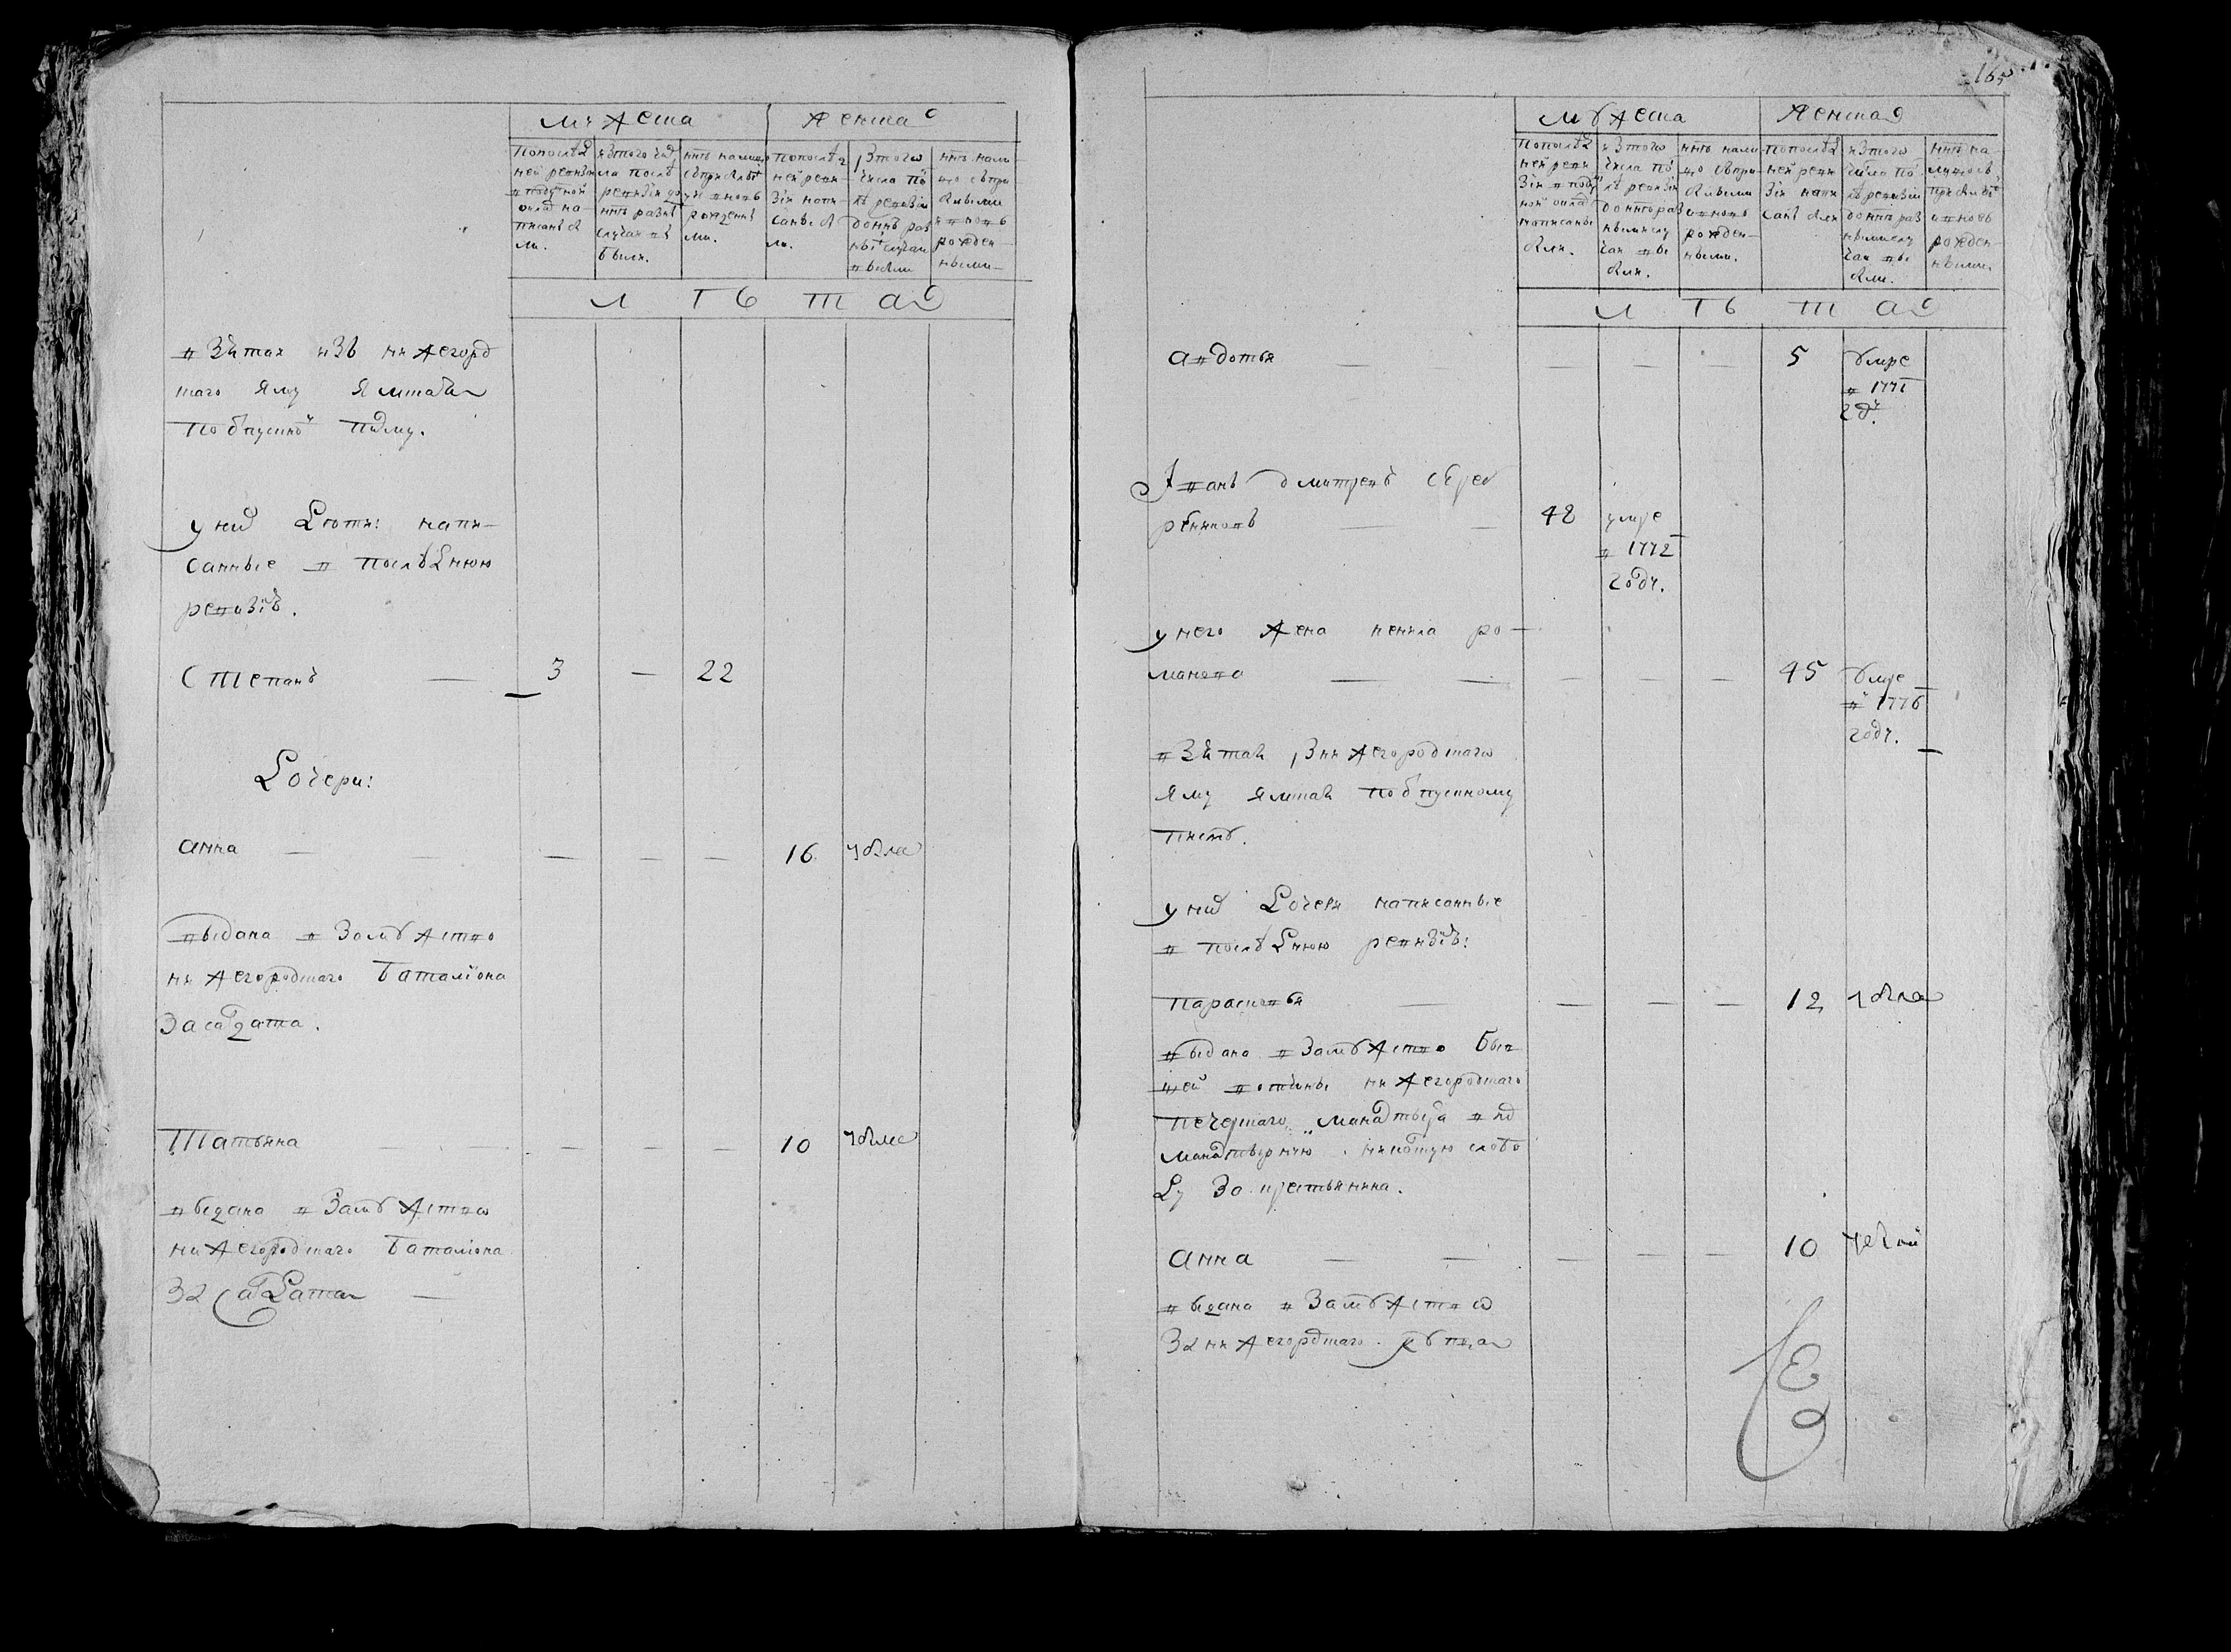 мужеска
женска
По последней ревизии и подушной оклад написаны были.
изтого числа после ревизии до ныне разными случаи выбыли.
ныне налицо с прибылыми и вновь рожденными.
По последней ревизии написаны были.
изтого числа после ревизии до ныне разными случаи выбыли
ныне налицо с прибылыми и вновь рожденными
Л Т Ъ Т А
взятая изъ нижегород
скаго яму ямская
по отпускному писму.
у них дети: напи-
санные в последнюю
ревизiю.
Степанъ 3 — 22
Дочери:
анна — — — 16 убыла
выдана в замужство
нижегородскаго баталiона
за салдата.
Татьяна — — — 10 убыла
выдана в замужство
нижегородскаго баталiона
за салдата —
165
мужеска
женска
По последней ревизии и подушной оклад написаны были.
изтого числа после ревизии до ныне разными случаи выбыли.
ныне налицо с прибылыми и вновь рожденными.
По последней ревизии написаны были
изтого числа после ревизии до ныне разными случаи выбыли.
ныне налицо с прибылыми и вновь рожденными.
Л Т Ъ Т А
авдотья — — — 5 умре
в 1771
году.
Iванъ дмитревъ сереб
рениковъ 48 умре
в 1772
году.
у него жена ро-
манова — — — 45 умре
в 1776
году.
взятая из нижегородскаго
яму ямская по отпускному
писму.
у них дочери написанные
в последнюю ревизiю:
Парасковья — — — 12 убыла
выдана в замужство быв
шей вотчины нижегородскаго
печерскаго манастыря в под
манастырную слобо
ду за крестьянина.
анна — — — 10 убыла
выдана в замужство
за нижегородскаго купца